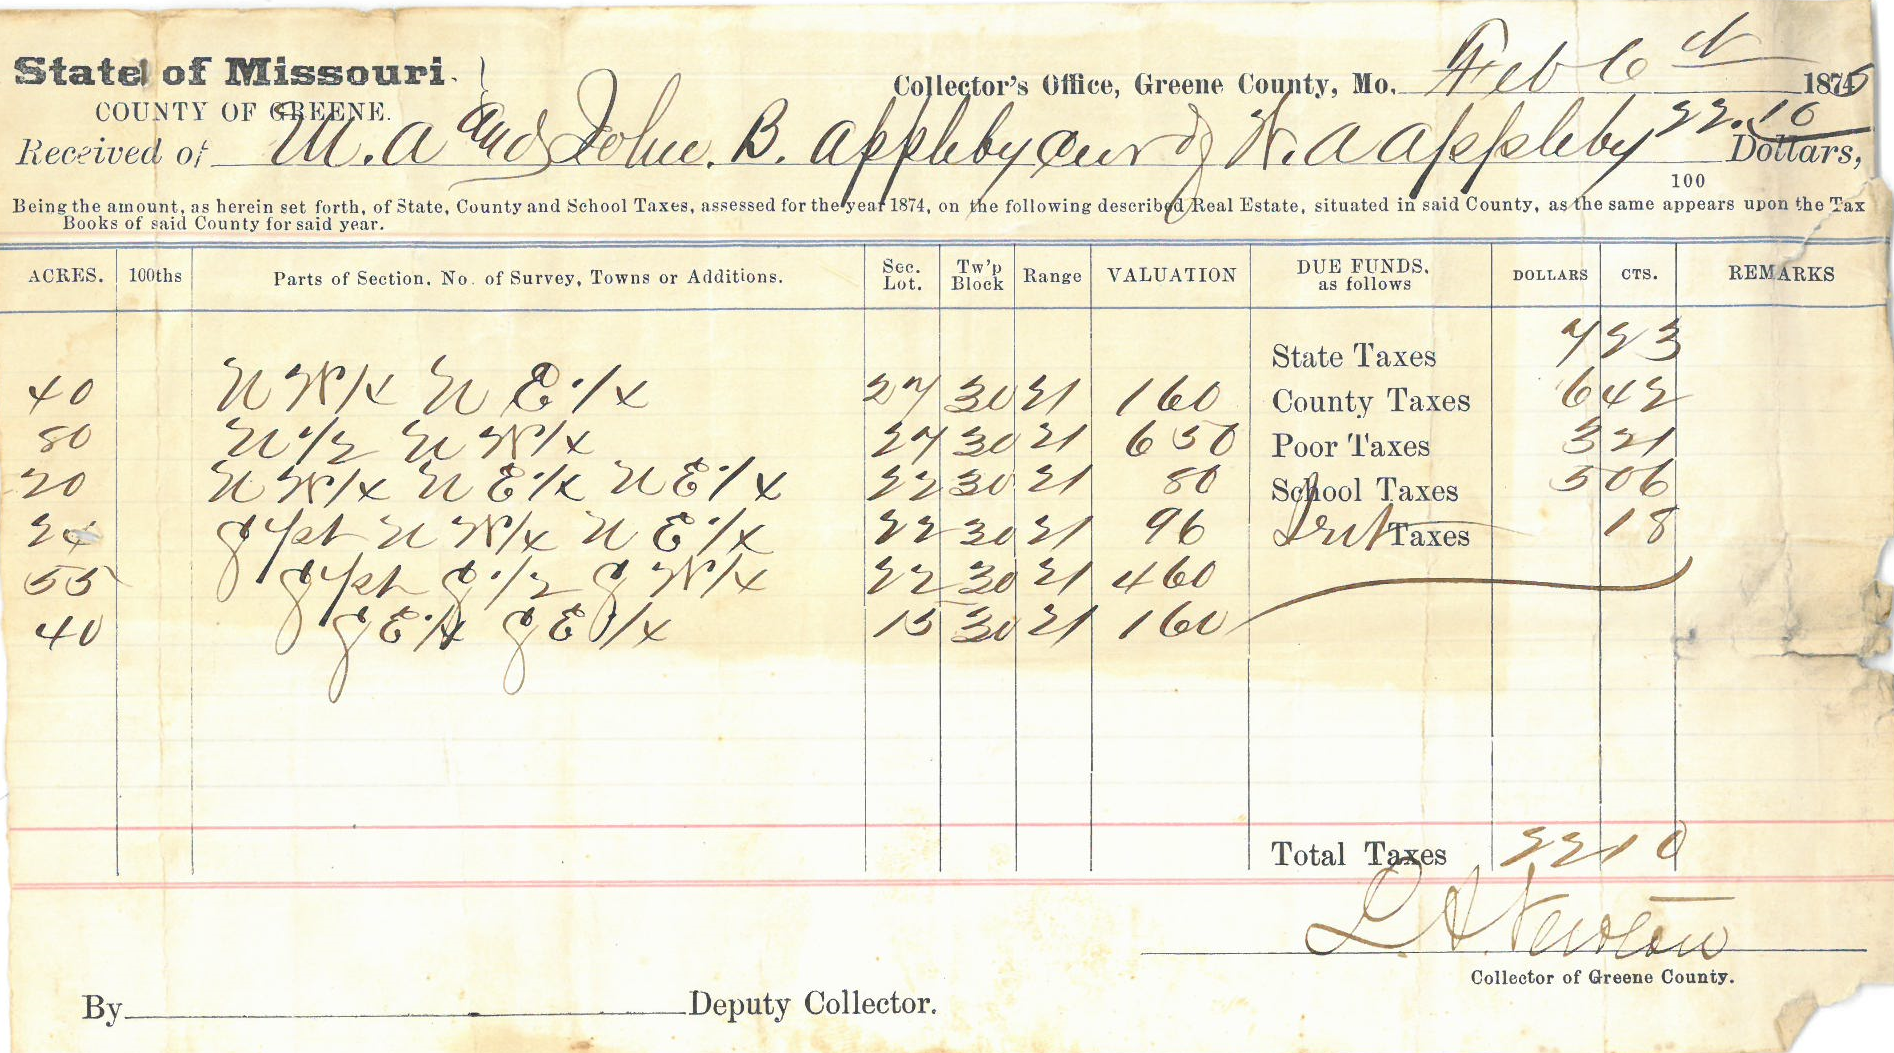 State of Missouri.
COUNTY OF GREENE.
Collector's Office, Greene County, Mo. Feb 6th 1875
Received of M. A and John. B. Appleby cur of W. A Appleby 22.10/100 Dollars,
Being the amount, as herein set forth, of State, County and School Taxes, assessed for the year 1874, on the following described Real Estate, situated in said County, as the same appears upon the Tax
Books of said County for said year.
ACRES. 100ths Parts of Section, No. of Survey, Towns or Additions. Sec. Lot. Tw'p Block Range VALUATION DUE FUNDS, as follows DOLLARS CTS. REMARKS
State Taxes 7 23
40 N W 1/4 N E 1/4 27 30 21 160 County Taxes 6 42
80 N 1/2 N W 1/4 27 30 21 650 Poor Taxes 3 21
20 N W 1/4 N E 1/4 N E 1/4 22 30 21 80 School Taxes 5 06
24 S pt N W 1/4 N E 1/4 22 30 21 96 Int Taxes 18
55 S pt S 1/2 S W 1/4 22 30 21 460
40 S E 1/4 S E 1/4 15 30 21 160
Total Taxes 22 10
Collector of Greene County.
By Deputy Collector.